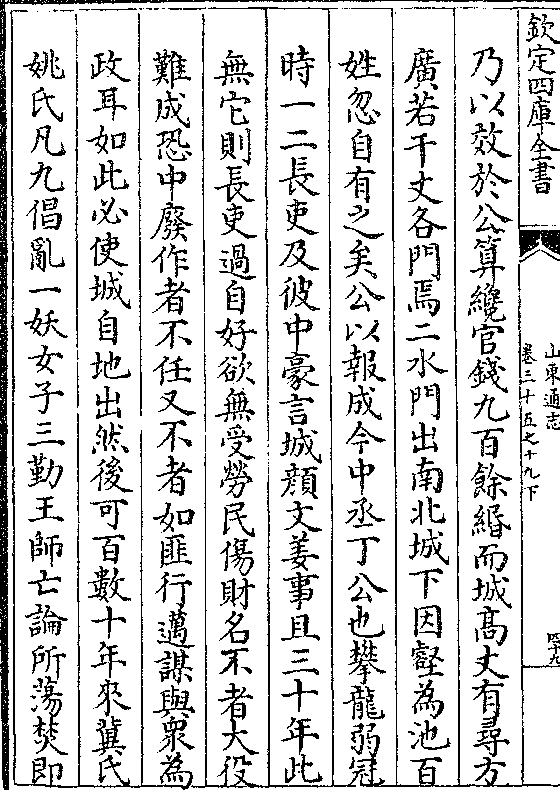 欽定四庫全書
山東通志
卷三十五之十九下
四十九
乃以效於公算纔官錢九百餘緡而城高丈有尋方
廣若干丈各門焉二水門出南北城下因壑為池百
姓忽自有之矣公以報成今中丞丁公也攀龍弱冠
時一二長吏及彼中豪言城顔文姜事且三十年此
無它則長吏過自好欲無受勞民傷財名不者大役
難成恐中廢作者不任又不者如匪行邁謀與衆為
政耳如此必使城自地出然後可百數十年來冀氏
姚氏凡九倡亂一妖女子三勤王師亡論所蕩焚即